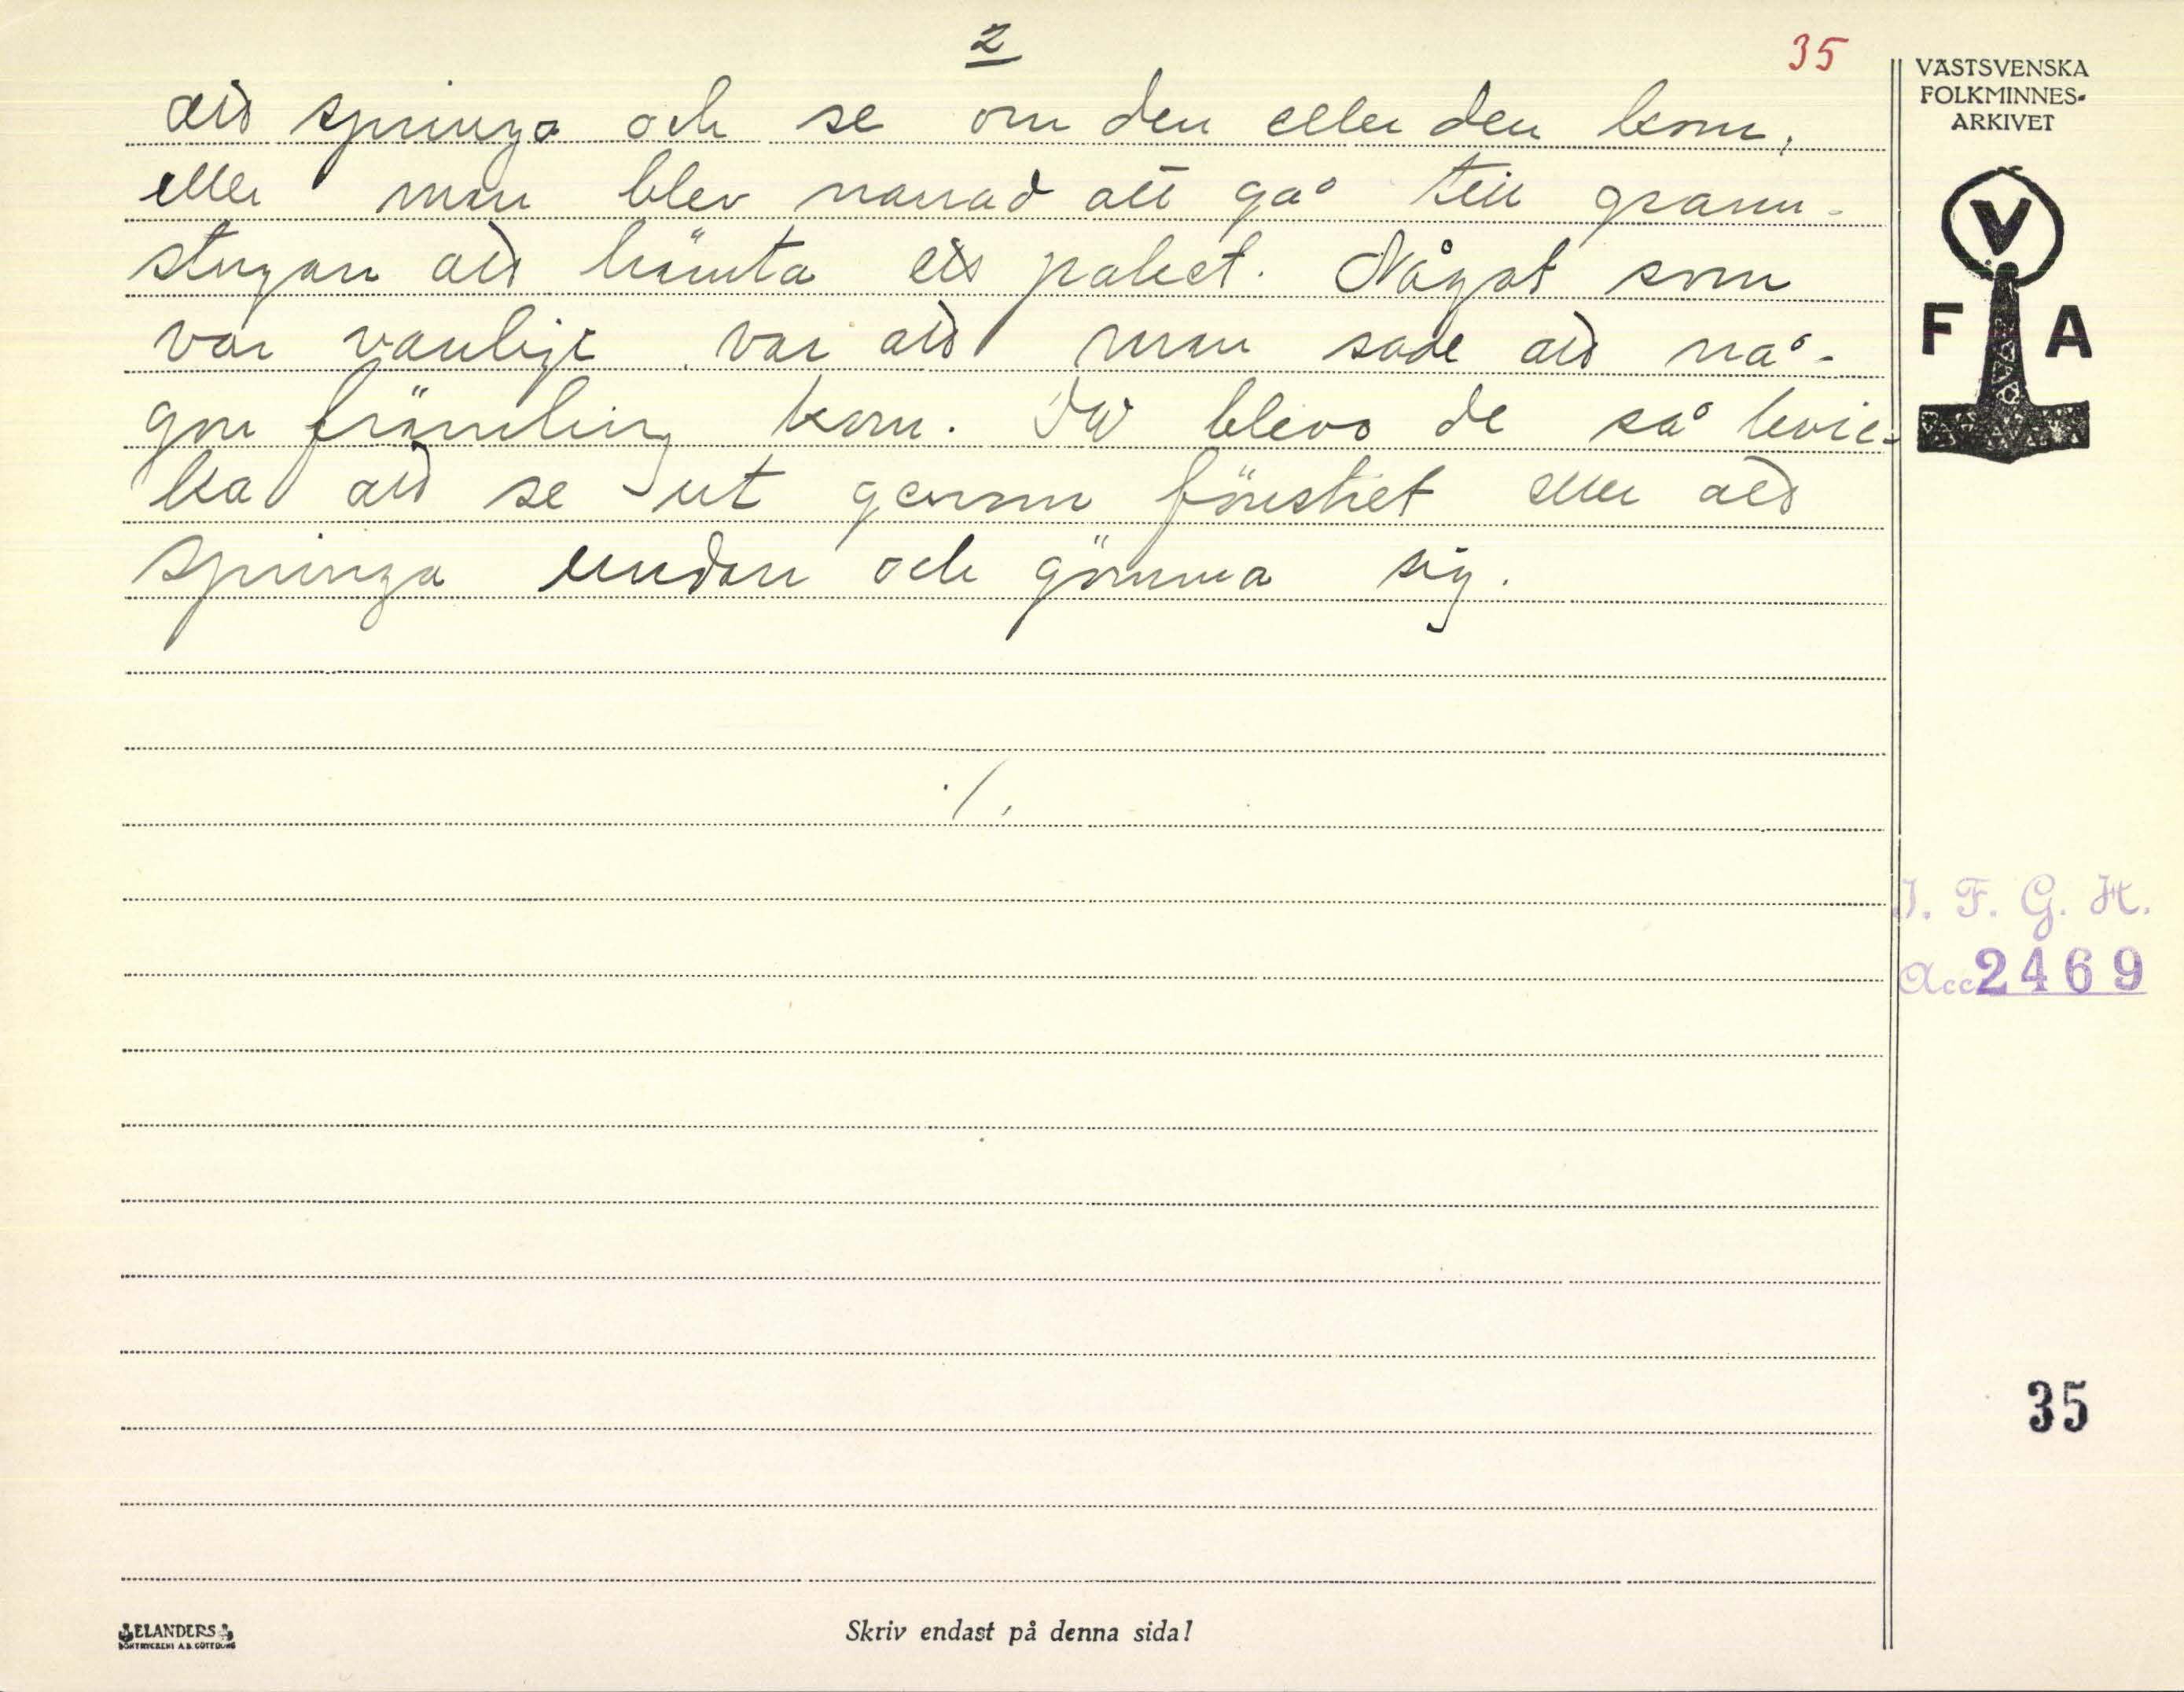 2
35
att springa och se om den eller den kom,
eller man blev narrad att gå till grann-
stugan att hämta ett paket. Något som
var vanligt var att man sade att nå-
gon främling kom. Då blevo de så kvic-
ka att se ut genom fönstret eller att
springa undan och gömma sig.
./.
VÄSTSVENSKA
FOLKMINNES-
ARKIVET
V
F A
I. F. G. H.
Acc 2469
35
ELANDERS
BOKTRYCKERI A.B. GÖTEBORG
Skriv endast på denna sida!